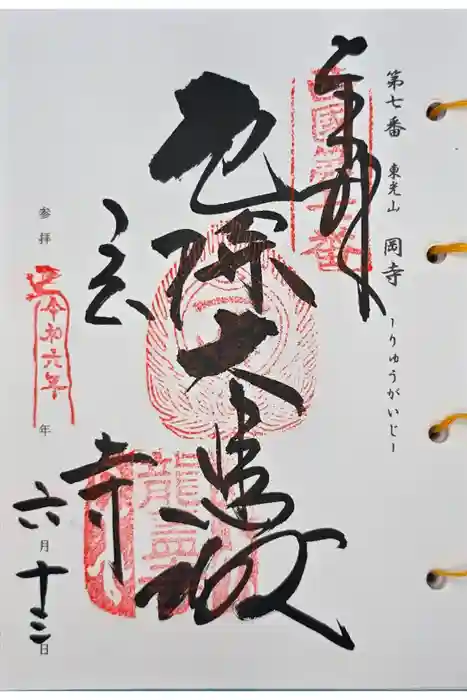 第七番 東光山 岡寺 ーりゅうがいじー
奉拝
西國第七番
厄除大悲殿
龍蓋
寺
参拝 令和六年 年 六月十三日